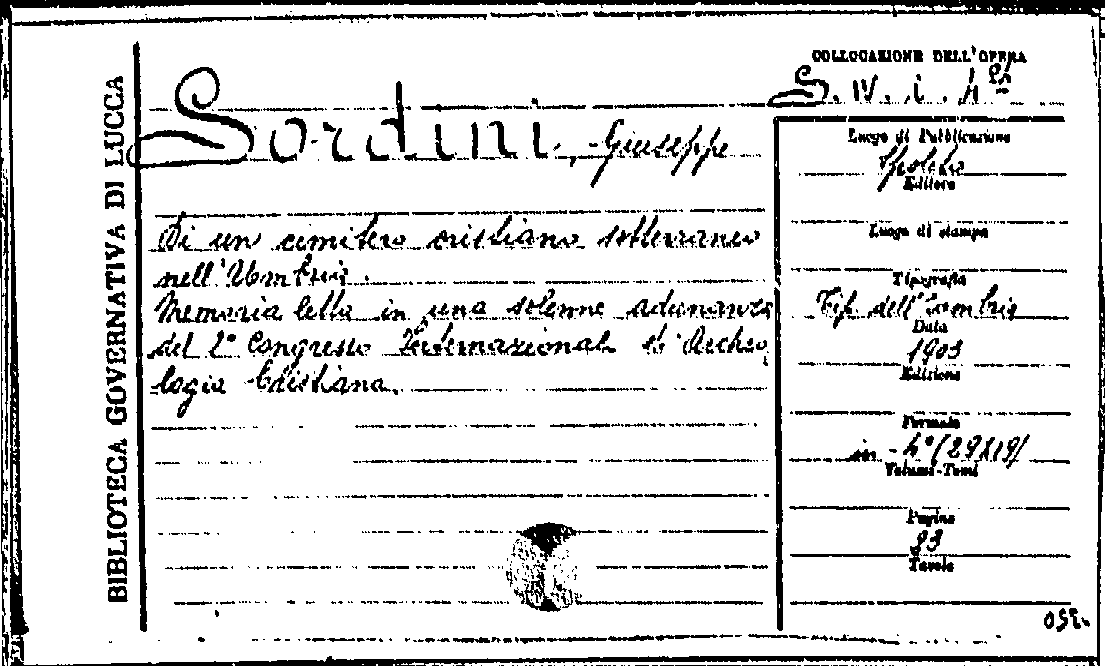 BIBLIOTECA GOVERNATIVA DI LUCCA
COLLOCAZIONE DELL'OPERA
S. IV. i. 4
Sordini, Giuseppe
Di un cimitero cristiano sotterraneo
nell'Umbria.
Memoria letta in una solenne adunanza
del 2° Congresso Internazionale di Archeo
logia Cristiana.
Luogo di Pubblicazione
Spoleto
Editore
Luogo di stampa
Tipografia
Tip. dell'Umbria
Data
1903
Edizione
Formato
in-4° (29X19)
Volumi-Tomi
Pagine
33
Tavole